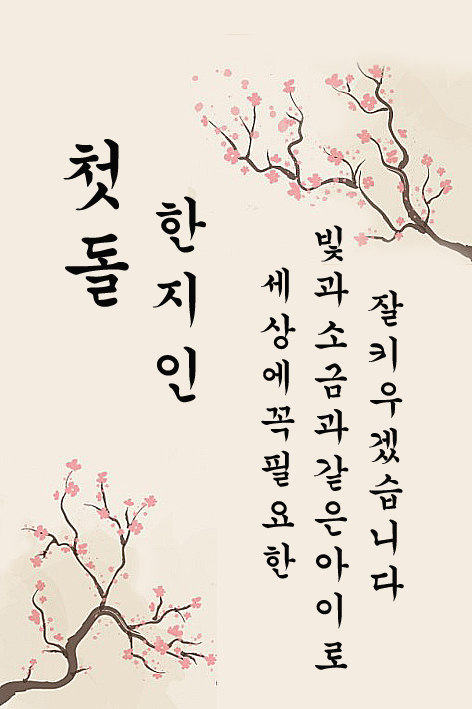 첫돌
한지인
세상에꼭필요한
빛과소금과같은아이로
잘키우겠습니다